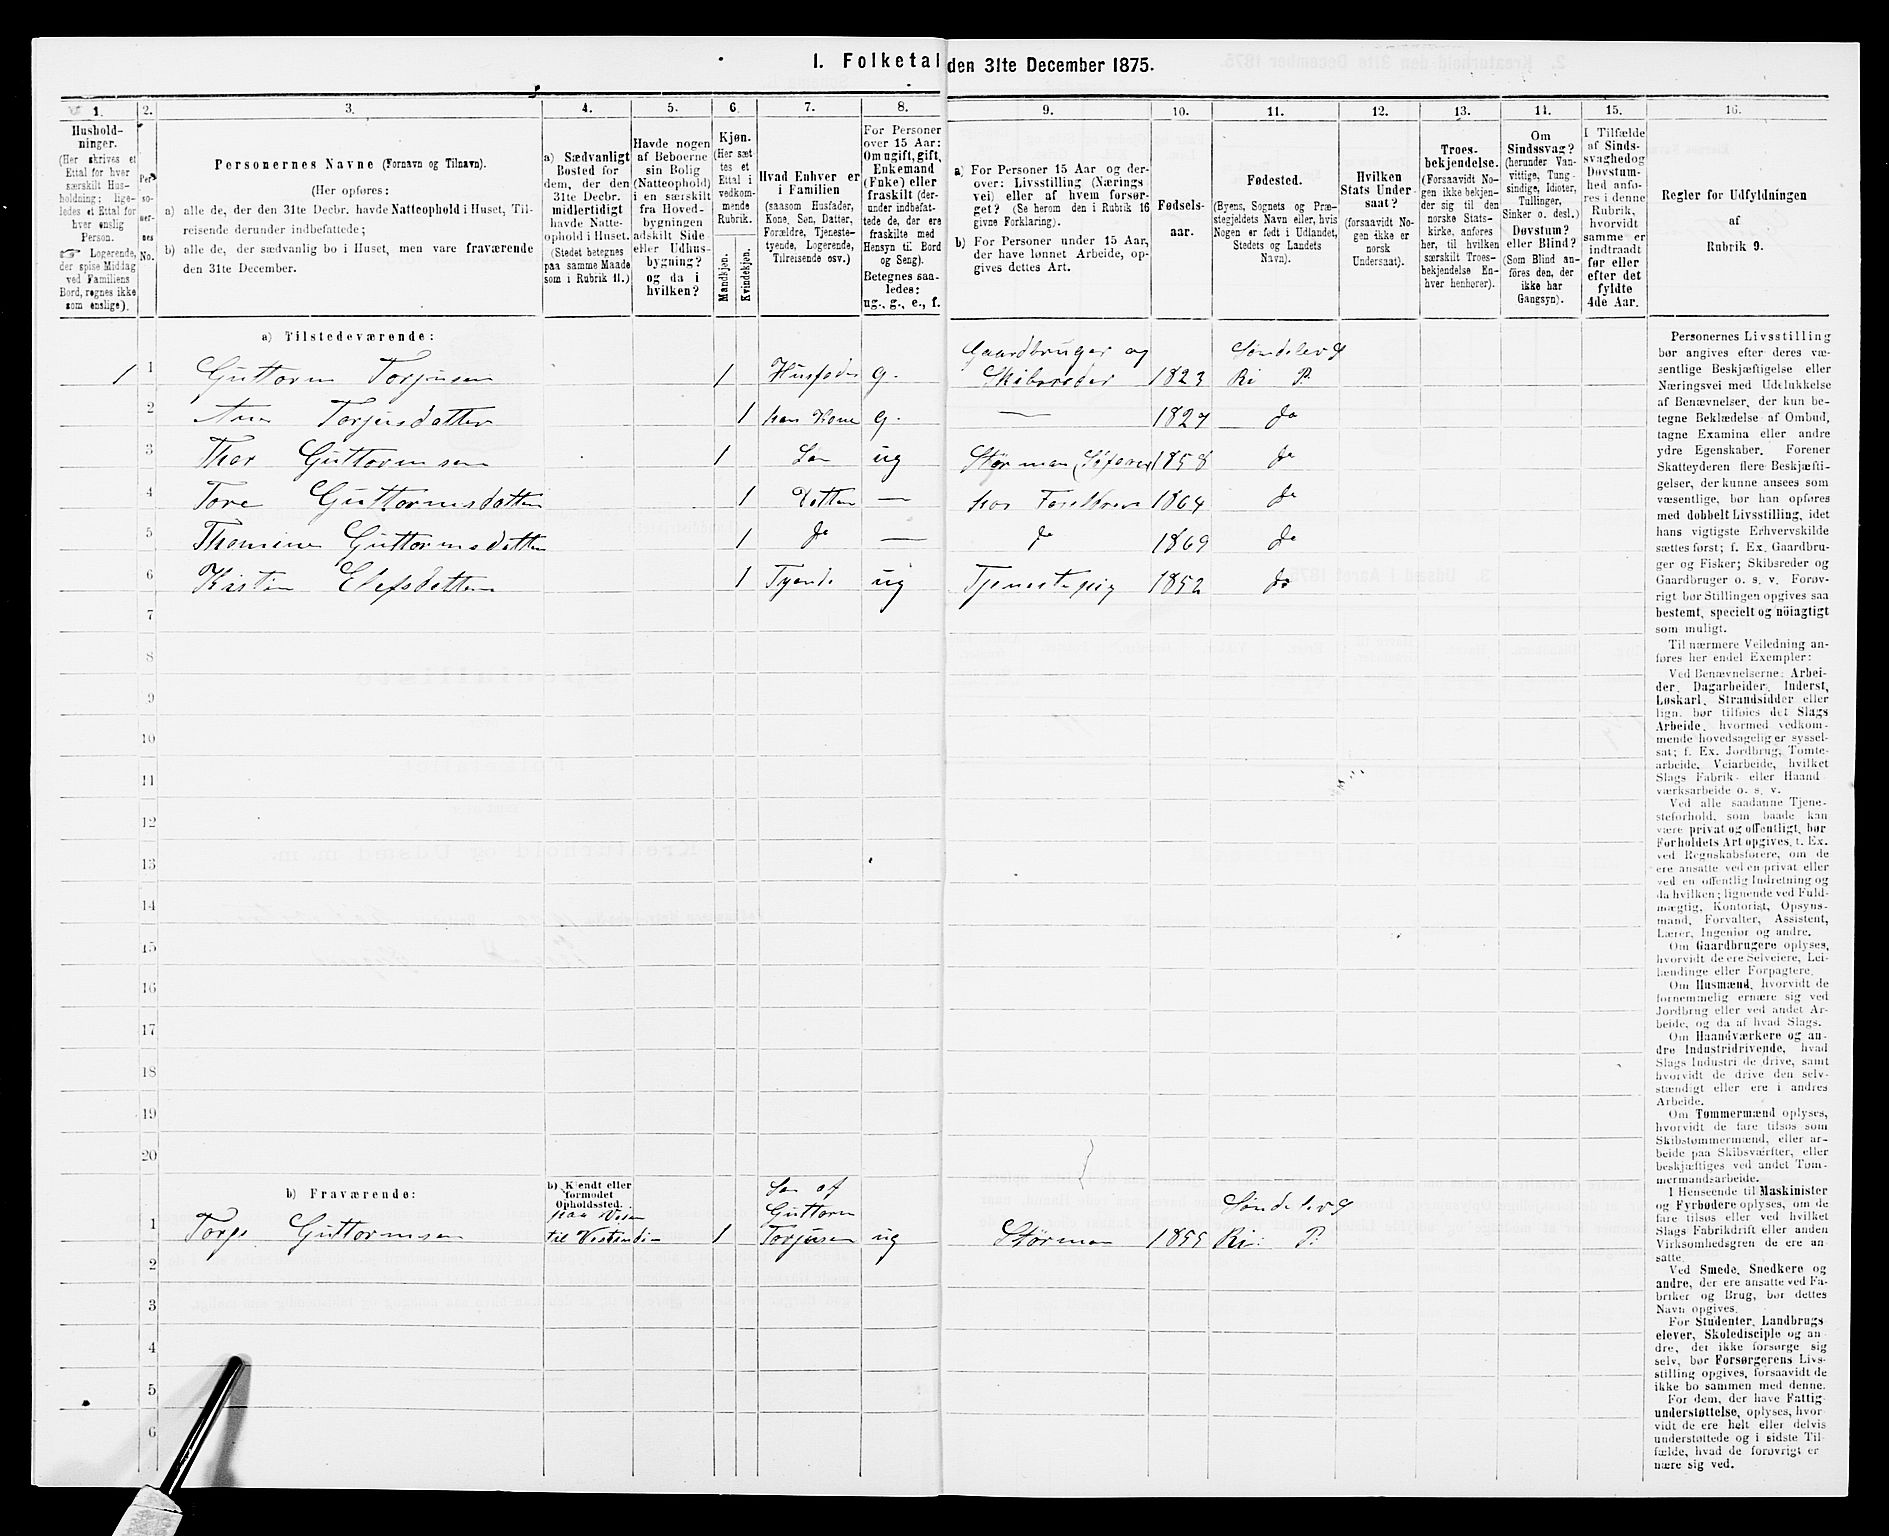 1. Folketal den 31te December 1875.
1.
2.
3.
4.
5.
6.
7.
8.
9.
10.
11.
12.
13.
14.
15.
16.
Hushold-
ninger.
(Her skrives et
Ettal for hver
særskilt Hus-
holdning; lige-
ledes et Ettal for
hver enslig
Person.
☞ Logerende,
der spise Middag
ved Familiens
Bord, regnes ikke
som enslige.)
Per
so-
ner-
nes
No.
Personernes Navne (Fornavn og Tilnavn).
(Her opføres:
a) alle de, der den 31te Decbr. havde Natteophold i Huset, Til-
reisende derunder indbefattede;
b) alle de, der sædvanlig bo i Huset, men vare fraværende
den 31te December.
a) Sædvanligt
Bosted for
dem, der den
31te Decbr.
midlertidigt
havde Natte-
ophold i Huset.
(Stedet betegnes
paa samme Maade
som i Rubrik 11.)
Havde nogen
af Beboerne
sin Bolig
(Natteophold)
i en særskilt
fra Hoved-
bygningen
adskilt Side-
eller Udhus-
bygning?
og da i
hvilken?
Kjøn.
(Her sæt
tes et
Ettal i
vedkom-
mende
Rubrik.
Mandkjøn.
Kvindekjøn.
Hvad Enhver er
i Familien
(saasom Husfader,
Kone, Søn, Datter,
Forældre, Tjeneste-
tyende, Logerende,
Tilreisende osv.)
For Personer
over 15 Aar:
Om ugift, gift,
Enkemand
(Enke) eller
fraskilt (der-
under indbefat-
tede de, der ere
fraskilte med
Hensyn til Bord
og Seng).
Betegnes saa-
ledes:
ug., g., e., f.
a) For Personer 15 Aar og der-
over: Livsstilling (Nærings
vei) eller af hvem forsør-
get? (Se herom den i Rubrik 16
givne Forklaring).
b) For Personer under 15 Aar,
der have lønnet Arbeide, op-
gives dettes Art.
Fødsels-
aar.
Fødested.
(Byens, Sognets og Præ-
stegjeldets Navn eller, hvis
Nogen er født i Udlandet,
Stedets og Landets
Navn).
Hvilken
Stats Under-
saat?
(forsaavidt No-
gen ikke er
norsk
Undersaat).
Troes-
bekjendelse.
(Forsaavidt No-
gen ikke bekjen-
der sig til den
norske Stats-
kirke, anføres
her, til hvilken
særskilt Troes-
bekjendelse En-
hver henhører).
Om
Sindssvag?
(herunder Van-
vittige, Tung-
sindige, Idioter,
Tullinger,
Sinker o. desl.)
Døvstum?
eller Blind?
(Som Blind an-
føres den, der
ikke har
Gangsyn).
I Tilfælde
af Sinds-
svaghed og
Døvstum-
hed anfø-
res i denne
Rubrik,
hvorvidt
samme er
indtraadt
før eller
efter det
fyldte
4de Aar.
Regler for Udfyldningen
af
Rubrik 9.
a) Tilstedeværende:
1 1 Guttorm Torjusen 1 Husfader g. Gaardbruger og Skibsreder 1823 Søndelevd Ri P.
2 Ane Torjusdatter 1 hans Kone g. — 1827 do
3 Thor Guttormsen 1 Søn ug Störman (Söfaren) 1858 do
4 Tore Guttormsdatter 1 Datter — hos Forældrene 1864 do
5 Thomine Guttormsdatter 1 do — do 1869 do
6 Kistin Elefsdatter 1 Tyende ug Tjenestepig 1852 do
7
8
9
10
11
12
13
14
15
16
17
18
19
20
b) Fraværende:
b) Kjendt eller
formodet
Opholdssted.
1 Torge Guttormsen paa Reisen til Vestindien 1 Søn af Guttorm Torjusen ug Störman 1855 Søndelevd Ri: P.
2
3
4
5
6
Personernes Livsstilling
bør angives efter deres væ-
sentlige Beskjæftigelse eller
Næringsvei med Udelukkelse
af Benævnelser, der kun be-
tegne Beklædelse af Ombud,
tagne Examina eller andre
ydre Egenskaber. Forener
Skatteyderen flere Beskjæfti-
gelser, der kunne ansees som
væsentlige, bør han opføres
med dobbelt Livsstilling, idet
hans vigtigste Erhvervskilde
sættes først; f. Ex. Gaardbru-
ger og Fisker; Skibsreder og
Gaardbruger o. s. v. Forøv-
rigt bør Stillingen opgives saa
bestemt, specielt og nöiagtigt
som muligt.
Til nærmere Veiledning an-
føres her endel Exempler:
Ved Benævnelserne: Arbei-
der, Dagarbeider, Inderst,
Løskarl, Strandsidder eller
lign. bør tilføies det Slags
Arbeide, hvormed vedkom-
mende hovedsagelig er syssel-
sat; f. Ex. Jordbrug, Tomte-
arbeide, Veiarbeide, hvilket
Slags Fabrik- eller Haand-
værksarbeide o. s. v.
Ved alle saadanne Tjene-
steforhold, som baade kan
være privat og offentligt, bør
Forholdets Art opgives, t. Ex.
ved Regnskabsførere, om de
ere ansatte ved en privat eller
ved en offentlig Indretning og
da hvilken; lignende ved Fuld-
mægtig, Kontorist, Opsyns-
mand, Forvalter, Assistent,
Lærer, Ingeniør og andre.
Om Gaardbrugere oplyses,
hvorvidt de ere Selveiere, Lei-
lændinge eller Forpagtere.
Om Husmænd, hvorvidt de
fornemmelig ernære sig ved
Jordbrug eller ved andet Ar-
beide, og da af hvad Slags.
Om Haandværkere og an-
dre Industridrivende, hvad
Slags Industri de drive, samt
hvorvidt de drive den selv-
stændigt eller ere i andres
Arbeide.
Om Tømmermænd oplyses,
hvorvidt de fare tilsøs som
Skibstømmermænd, eller ar-
beide paa Skibsværfter, eller
beskjæftiges ved andet Tøm-
mermandsarbeide.
I Henseende til Maskinister
og Fyrbødere oplyses, om de
fare tilsøs eller ved hvilket
Slags Fabrikdrift eller anden
Virksomhedsgren de ere an-
satte.
Ved Smede, Snedkere og
andre, der ere ansatte ved Fa-
briker og Brug, bør dettes
Navn opgives.
For Studenter, Landbrugs-
elever, Skoledisciple og an-
dre, der ikke forsørge sig
selv, bør Forsørgerens Livs-
stilling opgives, forsaavidt de
ikke bo sammen med denne.
For dem, der have Fattig-
understøttelse, oplyses, hvor-
vidt de ere helt eller delvis
understøttede og i sidste Til-
fælde, hvad de forøvrigt er-
nære sig ved.